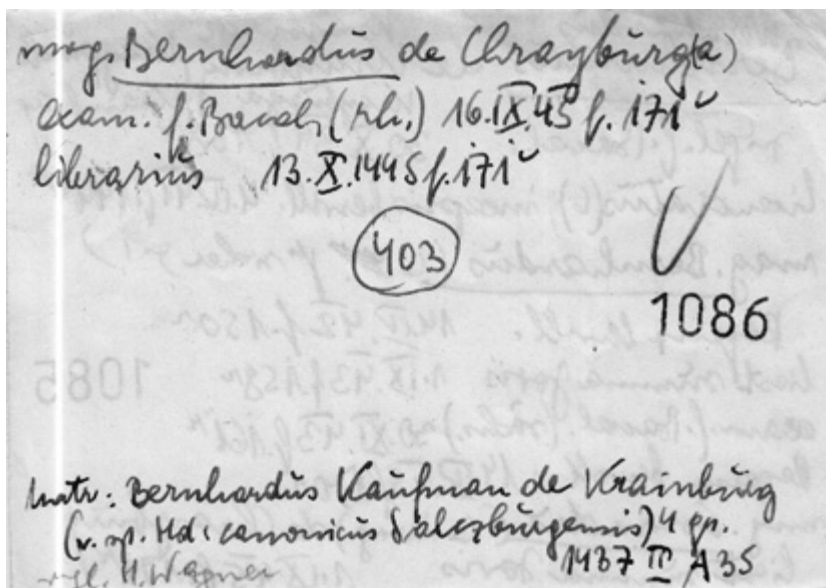 mag. Bernhardus de Chrayburg(a)
exam. f. Baccal. (rh.) 16.IX.45 f. 171v
librarius 13.X.1445 f. 171v
403
1086
Matr: Bernhardus Kaufman de Krainburg
(v. sp. Hd: canonicus Salczburgensis) 4 gr.
1437 III A 35
vgl. H. Wagner